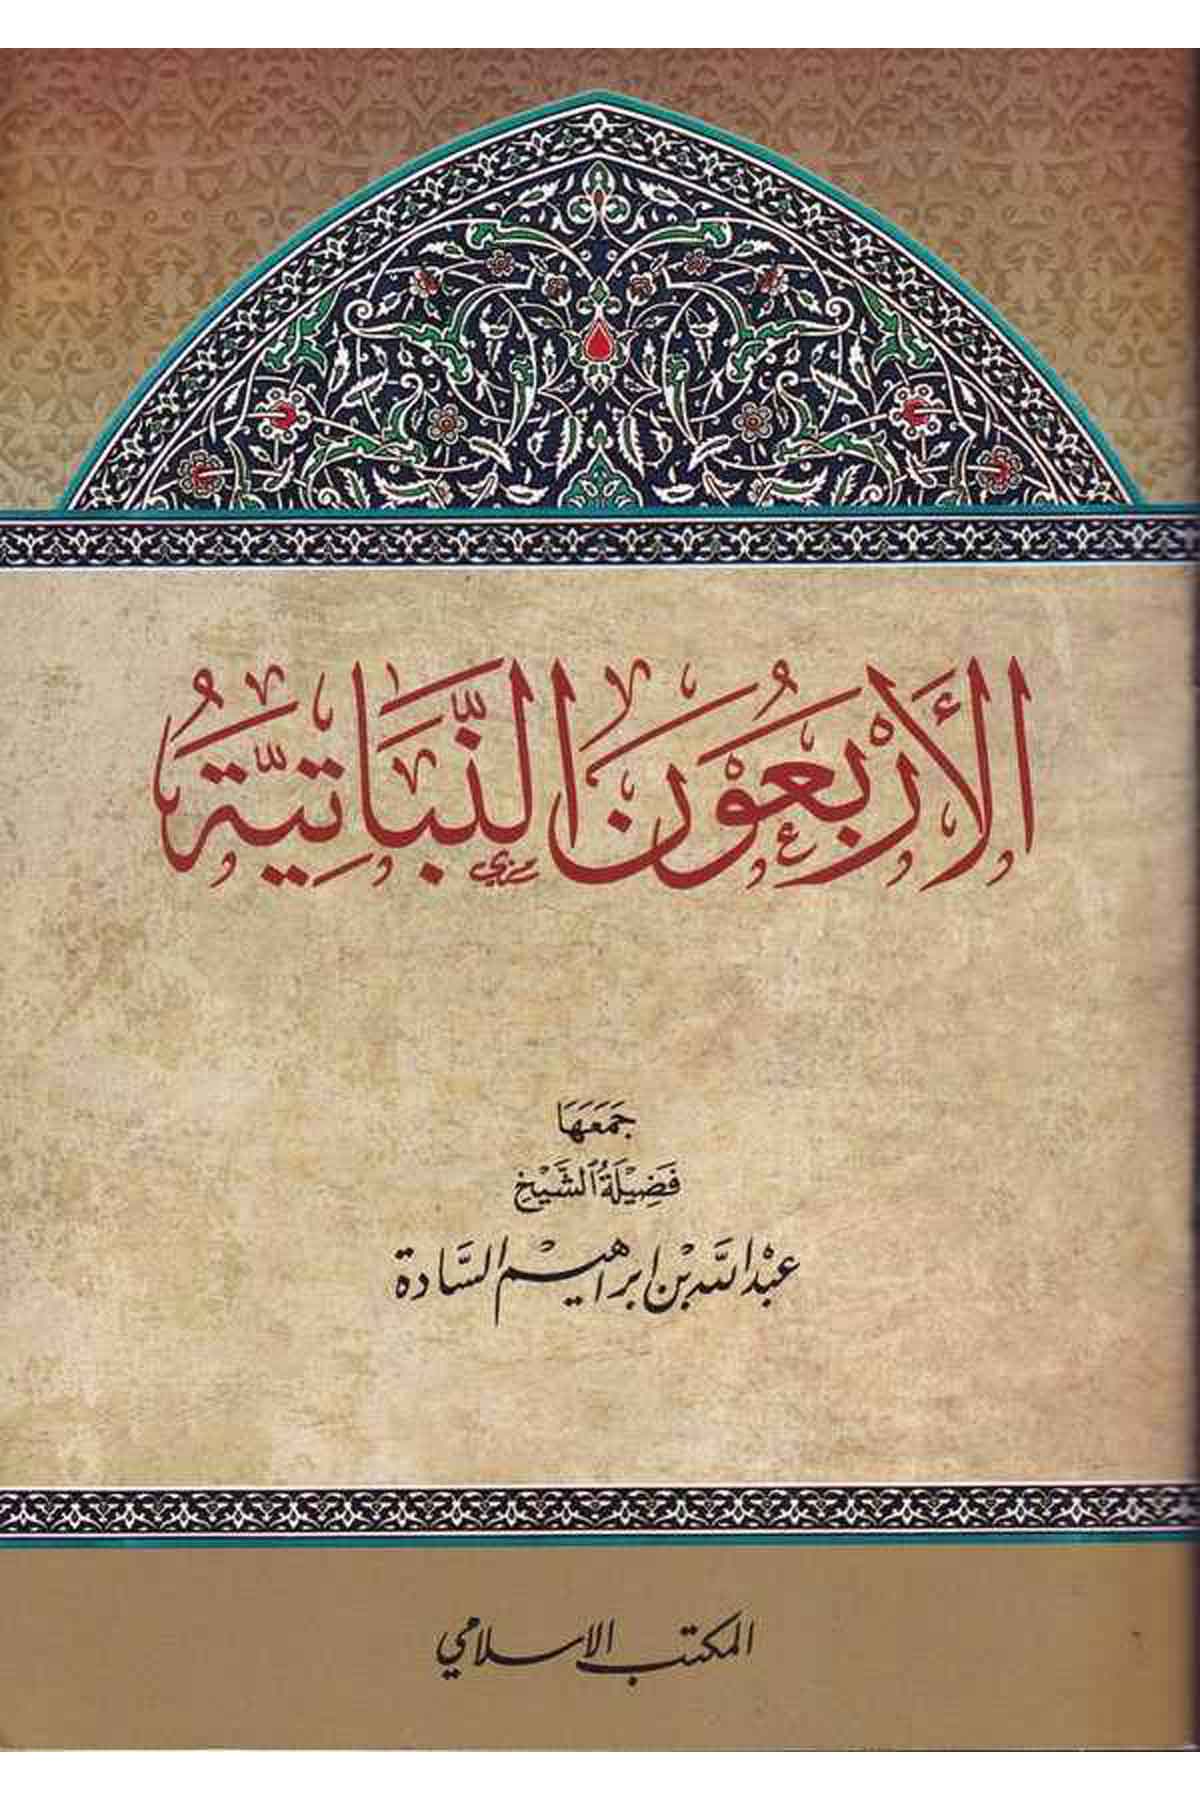 الأَرْبَعُوْنَ النَّبَاتِيَّةُ
جَمَعَهَا
فَضِيْلَةُ الشَّيْخِ
عَبْدُ اللَّه بْن ابراهيْم السَّادة
المكتب الاسلامي